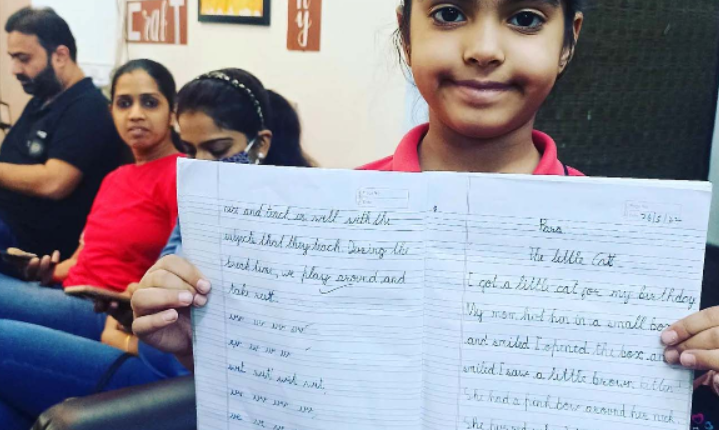 CRAFT
ny
nice and teach us well with the
subjects that they teach. During the
break time, we play around and
take rest.
wr wr wr wr
wr wr wr wr
wr wr wr wr
26/5/22
Para
The little Cat
I got a little cat for my birthday
My mom hid him in a small box
and smiled I opened the box and
smiled I saw a little brown kitten
She had a pink bow around her neck.
She